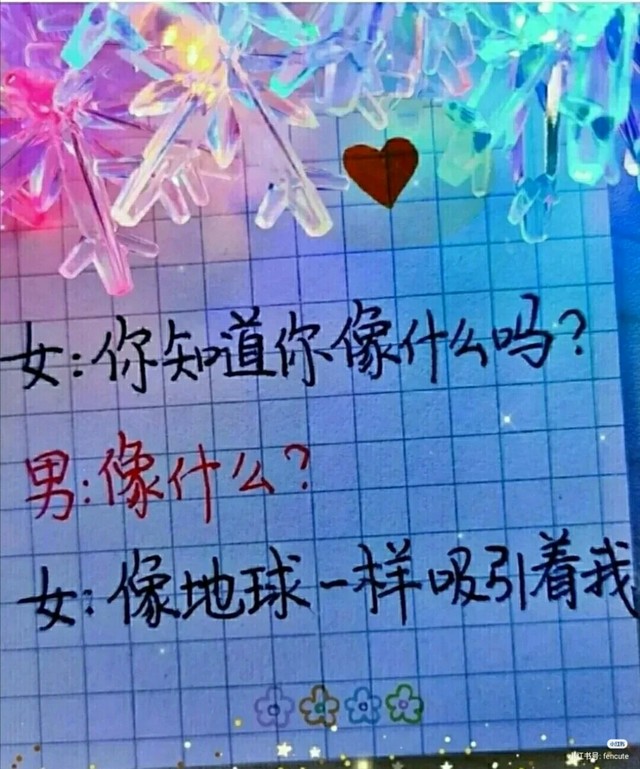 女:你知道你像什么吗?
男:像什么?
女:像地球一样吸引着我
小红书
小红书号: fencute